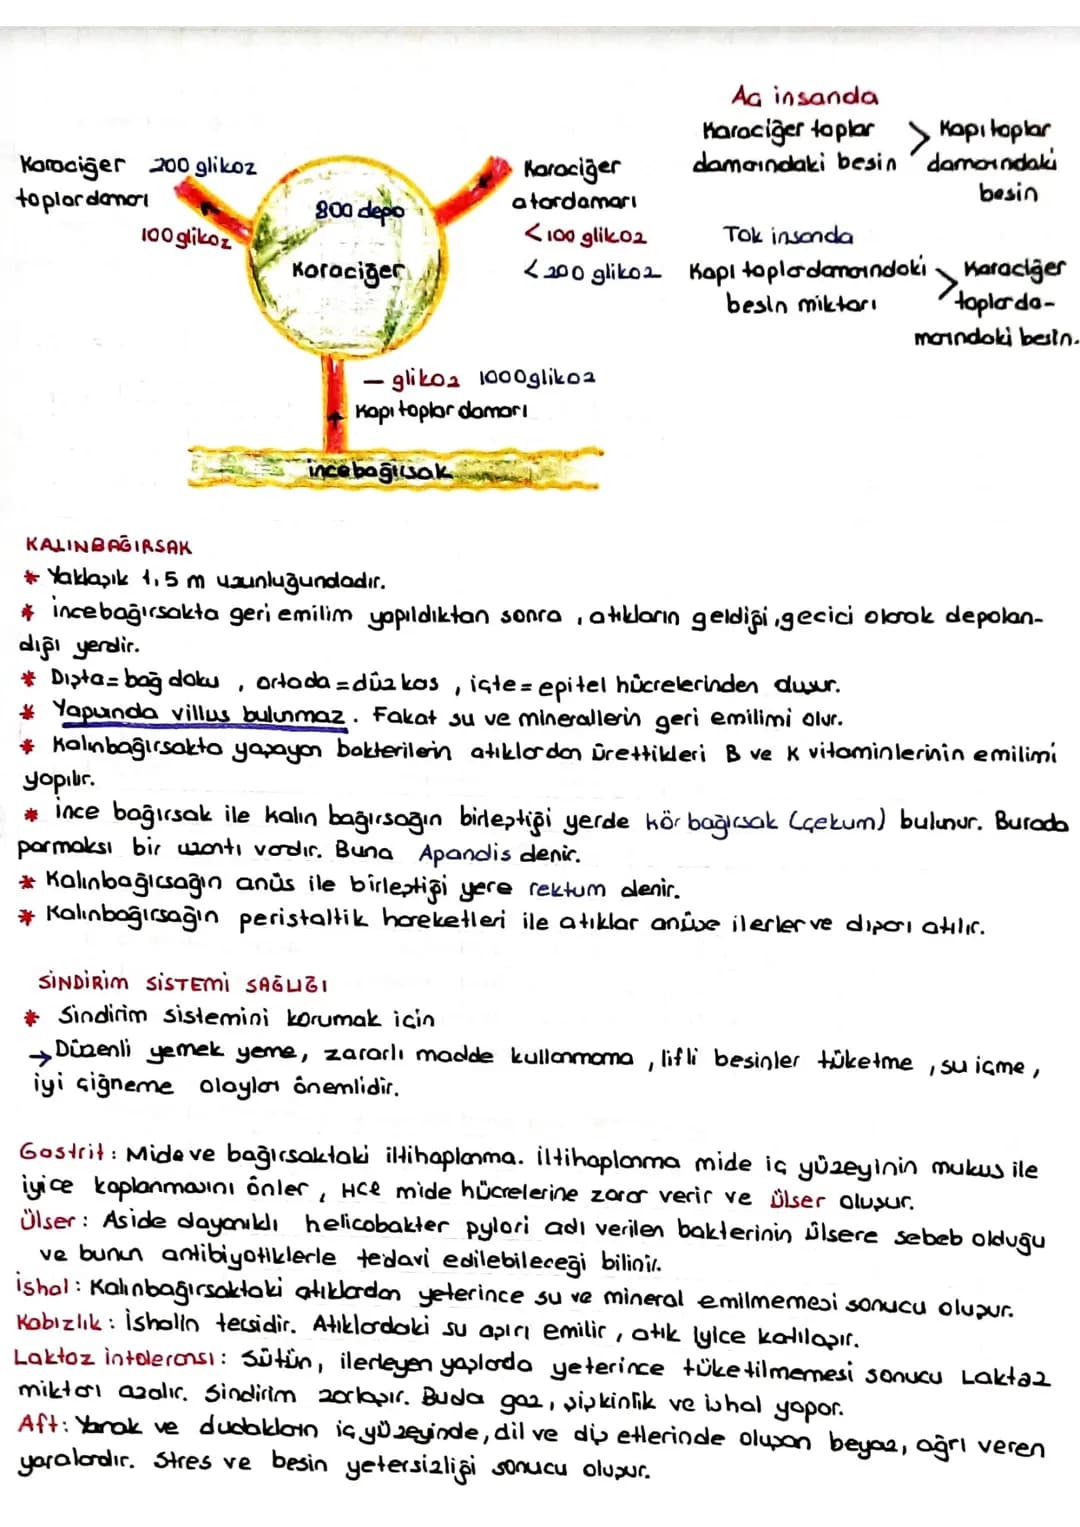 Aç insanda
Karaciğer toplar > Kapı toplar
damarındaki besin damarındaki
besin
Tok insanda
Kapı toplardamarındaki > Karaciğer
besin miktarı toplarda-
marındaki besin.
Karaciğer 200 glikoz
toplardamarı
100 glikoz
800 depo
Karaciğer
Karaciğer
atardamarı
<100 glikoz
<200 glikoz
— glikoz 1000glikoz
Kapı toplar damarı
incebağırsak
KALINBAĞIRSAK
* Yaklaşık 1,5 m uzunluğundadır.
* incebağırsakta geri emilim yapıldıktan sonra, atıkların geldiği, geçici olarak depolan-
dığı yerdir.
* Dışta = bağ doku, ortada = düz kas, içte = epitel hücrelerinden oluşur.
* Yapısında villus bulunmaz. Fakat su ve minerallerin geri emilimi olur.
* Kalınbağırsakta yaşayan bakterilerin atıklardan ürettikleri B ve K vitaminlerinin emilimi
yapılır.
* ince bağırsak ile kalın bağırsağın birleştiği yerde kör bağırsak (çekum) bulunur. Burada
parmaksı bir uzantı vardır. Buna Apandis denir.
* Kalınbağırsağın anüs ile birleştiği yere rektum denir.
* Kalınbağırsağın peristaltik hareketleri ile atıklar anüse ilerler ve dışarı atılır.
SİNDİRİM SİSTEMİ SAĞLIĞI
* Sindirim sistemini korumak için
→ Düzenli yemek yeme, zararlı madde kullanmama, lifli besinler tüketme, su içme,
iyi çiğneme olayları önemlidir.
Gastrit: Mide ve bağırsaktaki iltihaplanma. iltihaplanma mide iç yüzeyinin mukus ile
iyice kaplanmasını önler, HCl mide hücrelerine zarar verir ve ülser oluşur.
Ülser: Aside dayanıklı helicobakter pylori adı verilen bakterinin ülsere sebeb olduğu
ve bunun antibiyotiklerle tedavi edilebileceği bilinir.
ishal: Kalınbağırsaktaki atıklardan yeterince su ve mineral emilmemesi sonucu oluşur.
Kabızlık: İshalin tersidir. Atıklardaki su aşırı emilir, atık iyice katılaşır.
Laktoz intoleransı: Sütün, ilerleyen yaşlarda yeterince tüketilmemesi sonucu Laktaz
miktarı azalır. Sindirim zorlaşır. Buda gaz, şişkinlik ve ishal yapar.
Aft: Yanak ve dudakların iç yüzeyinde, dil ve diş etlerinde oluşan beyaz, ağrı veren
yaralardır. Stres ve besin yetersizliği sonucu oluşur.